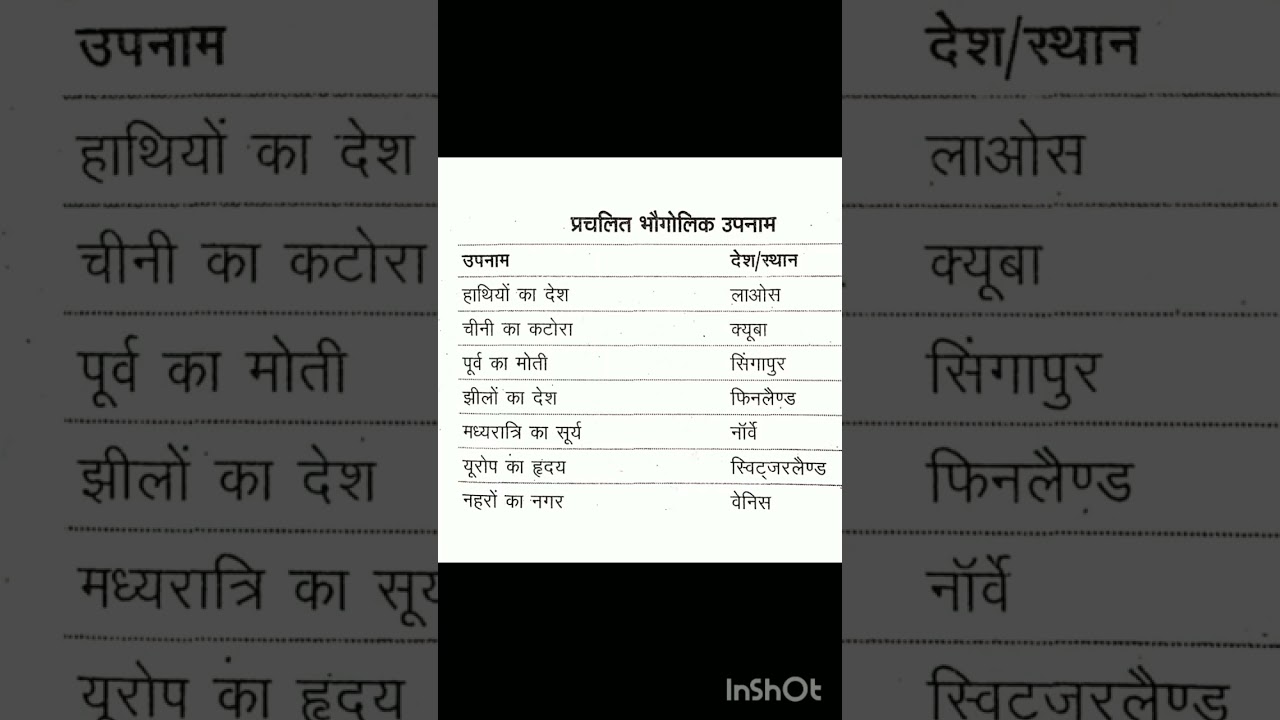 प्रचलित भौगोलिक उपनाम
उपनाम देश/स्थान
हाथियों का देश लाओस
चीनी का कटोरा क्यूबा
पूर्व का मोती सिंगापुर
झीलों का देश फिनलैण्ड
मध्यरात्रि का सूर्य नॉर्वे
यूरोप का हृदय स्विट्जरलैण्ड
नहरों का नगर वेनिस
InShOt